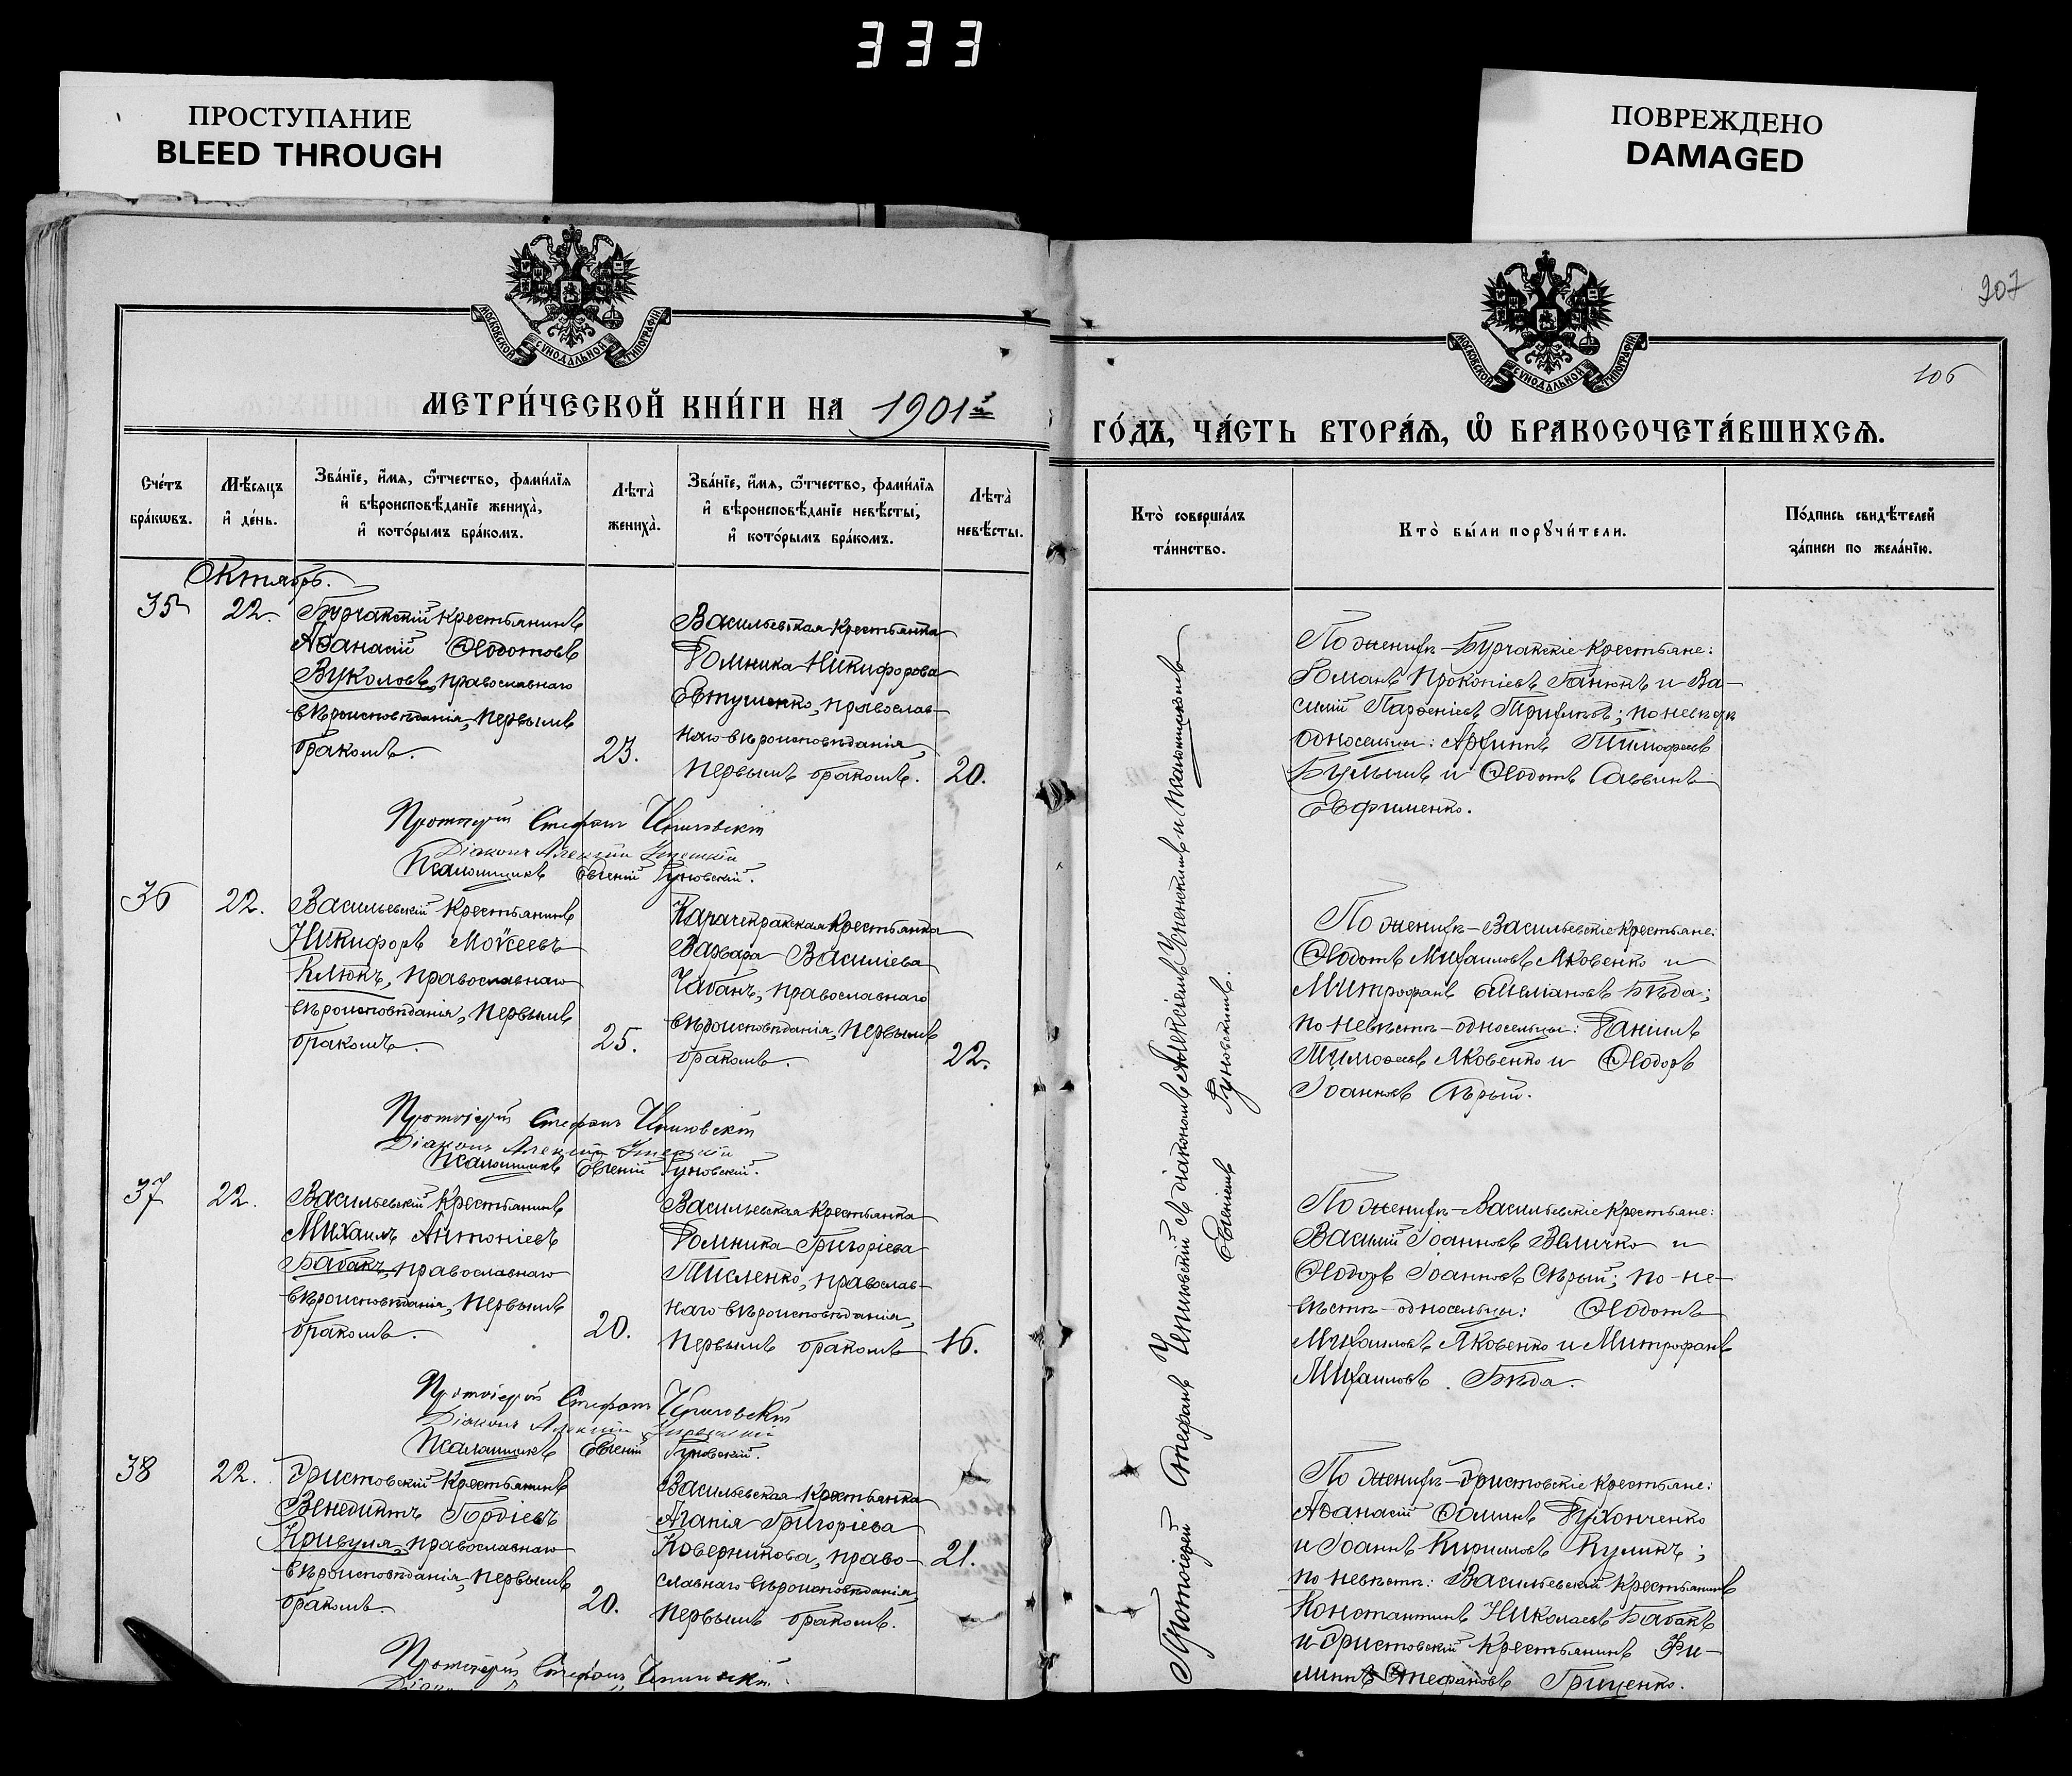 333
ПРОСТУПАНИЕ
BLEED THROUGH
ПОВРЕЖДЕНО
DAMAGED
207
106
МОСКОВСКОЙ СѴНОДАЛЬНОЙ ТИПОГРАФІИ
МОСКОВСКОЙ СѴНОДАЛЬНОЙ ТИПОГРАФІИ
МЕТРИ́ЧЕСКОЙ КНИ́ГИ НА 1901й
ГО́ДЪ, ЧА́СТЬ ВТОРА́Ѧ, Ѡ҆ БРАКОСОЧЕТА́ВШИХСѦ.
Сче́тъ
бра́кѡвъ.
Мѣ́сяцъ
и҆ де́нь.
Зва́нїе, и҆́мѧ, ѻ҆́тчество, фами́лїѧ
и҆ вѣроисповѣ́данїе жениха̀,
и҆ кото́рымъ бра́комъ.
Лѣта̀
жениха̀.
Зва́нїе, и҆́мѧ, ѻ҆́тчество, фами́лїѧ
и҆ вѣроисповѣ́данїе невѣ́сты,
и҆ кото́рымъ бра́комъ.
Лѣта̀
невѣ́сты.
Кто̀ соверша́лъ
та́инство.
Кто̀ бы́ли порꙋчи́тели.
По́дпись свидѣ́телей
за́писи по жела́нїю.
Октябрь.
35
22.
Бурчакскій крестьянинъ
Аѳанасій Ѳедотовъ
Вуколовъ, православнаго
вѣроисповѣданія, первымъ
бракомъ.
23.
Васильевская крестьянка
Домника Никифорова
Евтушенко, православ-
наго вѣроисповѣданія,
первымъ бракомъ.
20.
По женихѣ – Бурчакскіе крестьяне:
Романъ Прокопіевъ Ганюнъ и Ва-
силій Парѳеніевъ; по невѣстѣ
односельцы: Архиппъ Тимоѳеевъ
и Ѳедотъ Саввинъ
Евфименко.
Протоіерей Стефанъ
Діаконъ Алексій
Псаломщикъ Евгеній Гуновскій.
36
22.
Васильевскій крестьянинъ
Никифоръ Моѵсеевъ
Клюкъ, православнаго
вѣроисповѣданія, первымъ
бракомъ.
25.
Карачекракская крестьянка
Варвара Василіева
Чабанъ, православнаго
вѣроисповѣданія, первымъ
бракомъ.
22.
По женихѣ – Васильевскіе крестьяне:
Ѳедотъ Михаиловъ Яковенко и
Митрофанъ Емеліановъ Бѣда;
по невѣстѣ – односельцы: Даніилъ
Тимоѳеевъ Яковенко и Ѳедоръ
Іоанновъ Сѣрый.
Протоіерей Стефанъ
Діаконъ Алексій
Псаломщикъ Евгеній Гуновскій.
37
22.
Васильевскій крестьянинъ
Михаилъ Антоніевъ
Бабакъ, православнаго
вѣроисповѣданія, первымъ
бракомъ.
20.
Васильевская крестьянка
Домника Григоріева
Тисленко, православ-
наго вѣроисповѣданія,
первымъ бракомъ
16.
По женихѣ – Васильевскіе крестьяне:
Василій Іоанновъ Величко и
Ѳедоръ Іоанновъ Сѣрый; по не-
вѣстѣ – односельцы: Ѳедотъ
Михаиловъ Яковенко и Митрофанъ
Михаиловъ Бѣда.
Протоіерей Стефанъ
Діаконъ Алексій
Псаломщикъ Евгеній Гуновскій.
38
22.
Эристовскій крестьянинъ
Венедиктъ Гордіевъ
Кривуля, православнаго
вѣроисповѣданія, первымъ
бракомъ.
20.
Васильевская крестьянка
Агапія Григоріева
Коверникова, право-
славнаго вѣроисповѣданія,
первымъ бракомъ.
21.
По женихѣ – Эристовскіе крестьяне:
Аѳанасій Ѳоминъ
и Іоаннъ Кирилловъ Куликъ;
по невѣстѣ: Васильевскій крестьянинъ
Константинъ Николаевъ Бабакъ
и Эристовскій крестьянинъ Фи-
липпъ Стефановъ Гриценко.
Протоіерей Стефанъ
Протоіерей Стефанъ съ діакономъ Алексіемъ и псаломщикомъ
Евгеніемъ Гуновскимъ.